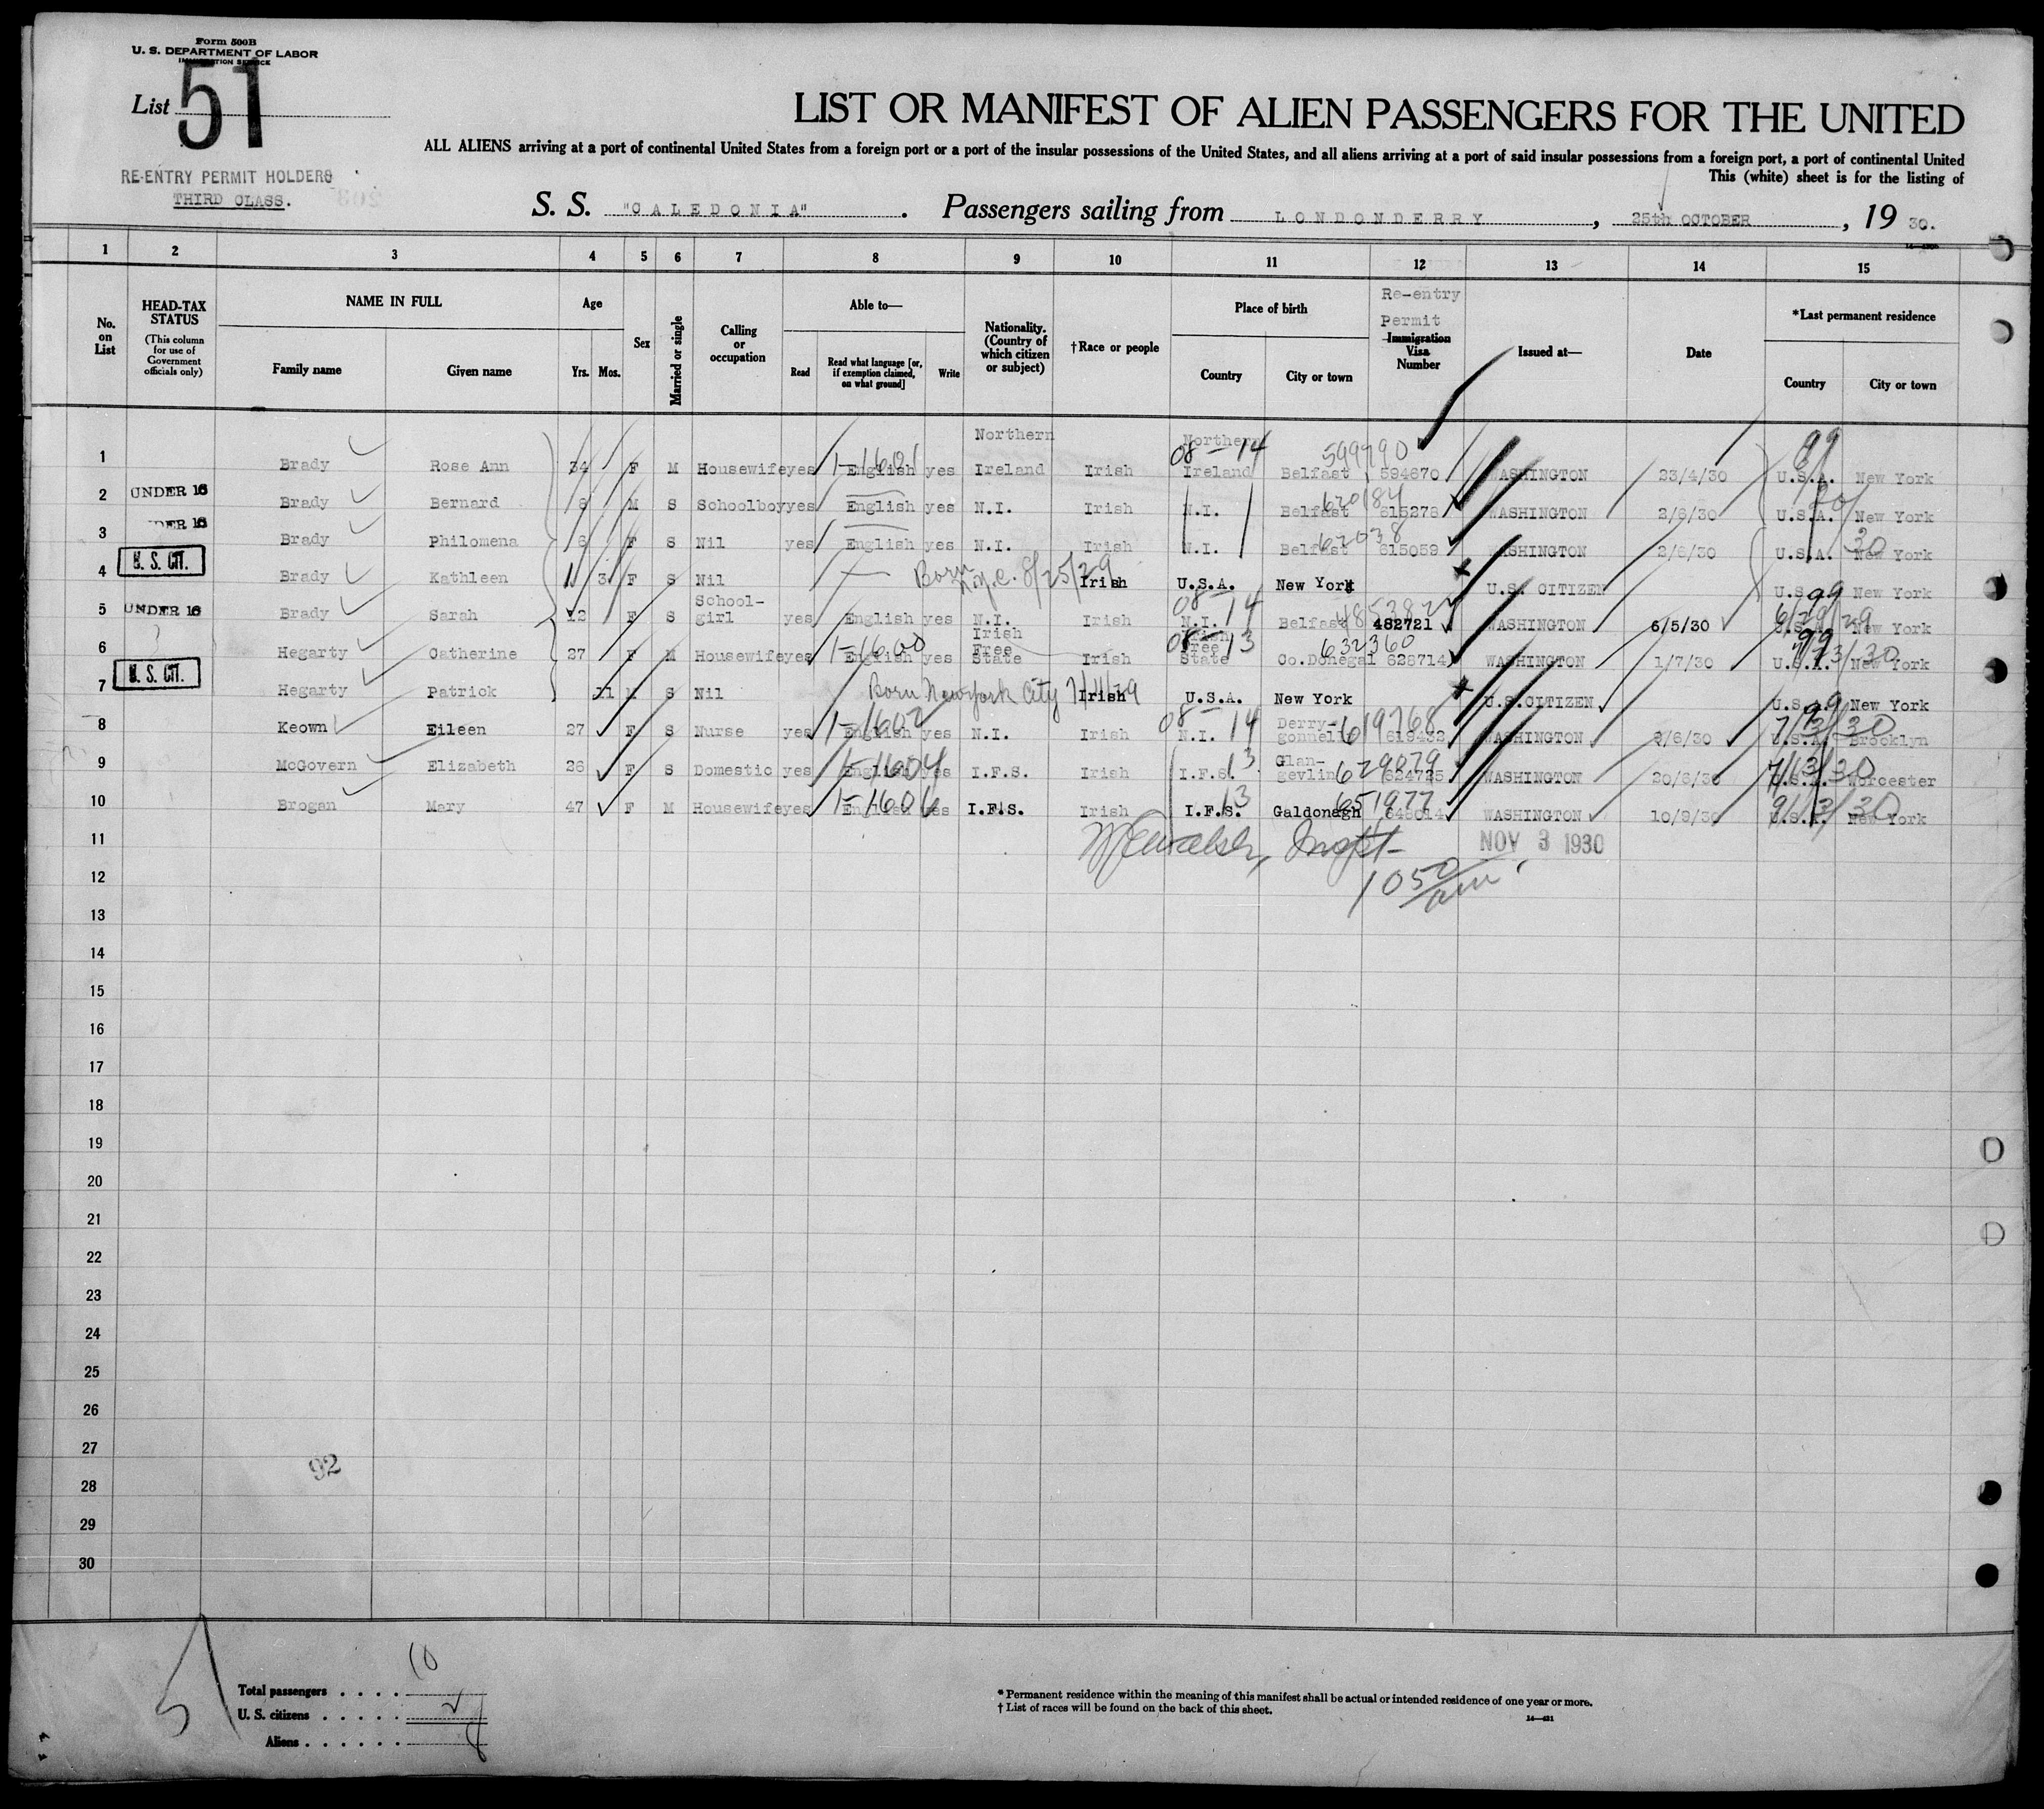 Form 500B
U. S. DEPARTMENT OF LABOR
IMMIGRATION SERVICE
List 51
RE-ENTRY PERMIT HOLDERS
THIRD CLASS.
LIST OR MANIFEST OF ALIEN PASSENGERS FOR THE UNITED
ALL ALIENS arriving at a port of continental United States from a foreign port or a port of the insular possessions of the United States, and all aliens arriving at a port of said insular possessions from a foreign port, a port of continental United
This (white) sheet is for the listing of
S. S. "CALEDONIA". Passengers sailing from LONDONDERRY, 25th OCTOBER, 19 30.
1 2 3 4 5 6 7 8 9 10 11 12 13 14 15
No. on List
HEAD-TAX STATUS
(This column for use of Government officials only)
NAME IN FULL
Family name Given name
Age
Yrs. Mos.
Sex
Married or single
Calling or occupation
Able to—
Read Read what language [or, if exemption claimed, on what ground] Write
Nationality. (Country of which citizen or subject)
†Race or people
Place of birth
Country City or town
Re-entry Permit
Immigration Visa Number
Issued at—
Date
*Last permanent residence
Country City or town
1 Brady Rose Ann 34 F M Housewife yes English yes Northern Ireland Irish Northern Ireland Belfast 594670 WASHINGTON 23/4/30 U.S.A. New York
1-1601 08-14 599790 99
2 UNDER 16 Brady Bernard 8 M S Schoolboy yes English yes N.I. Irish N.I. Belfast 615278 WASHINGTON 2/6/30 U.S.A. New York
620184
3 UNDER 16 Brady Philomena 6 F S Nil yes English yes N.I. Irish N.I. Belfast 615059 WASHINGTON 2/6/30 U.S.A. New York
62038
4 U. S. CIT. Brady Kathleen 1 3 F S Nil — Born N.Y.C. 8/25/29 Irish U.S.A. New York U.S. CITIZEN U.S.A. New York
5 UNDER 16 Brady Sarah 12 F S School-girl yes English yes N.I. Irish N.I. Belfast 482721 WASHINGTON 6/5/30 U.S.A. New York
08-14 485382 99 6/29/29
6 Hegarty Catherine 27 F M Housewife yes English yes Irish Free State Irish Irish Free State Co.Donegal 628714 WASHINGTON 1/7/30 U.S.A. New York
1-1600 08-13 632360 99
7 U. S. CIT. Hegarty Patrick 11 M S Nil Born New York City Irish U.S.A. New York U.S. CITIZEN U.S.A. New York
8 Keown Eileen 27 F S Nurse yes English yes N.I. Irish N.I. Derry-gonnelly 619432 WASHINGTON 9/6/30 U.S.A. Brooklyn
1-1602 08-14 619768 7/3/30
9 McGovern Elizabeth 26 F S Domestic yes English yes I.F.S. Irish I.F.S. Glan-gevlin 624725 WASHINGTON 20/6/30 U.S.A. Worcester
1-1604 13 629079 7/13/30
10 Brogan Mary 47 F M Housewife yes English yes I.F.S. Irish I.F.S. Galdonagh 648014 WASHINGTON 10/9/30 U.S.A. New York
1-1606 13 651977 9/13/30
11 NOV 3 1930
12 1050 am
13
14
15
16
17
18
19
20
21
22
23
24
25
26
27
92
28
29
30
51
Total passengers . . . . 10
U. S. citizens . . . . . 2
Aliens . . . . . . 8
* Permanent residence within the meaning of this manifest shall be actual or intended residence of one year or more.
† List of races will be found on the back of this sheet.